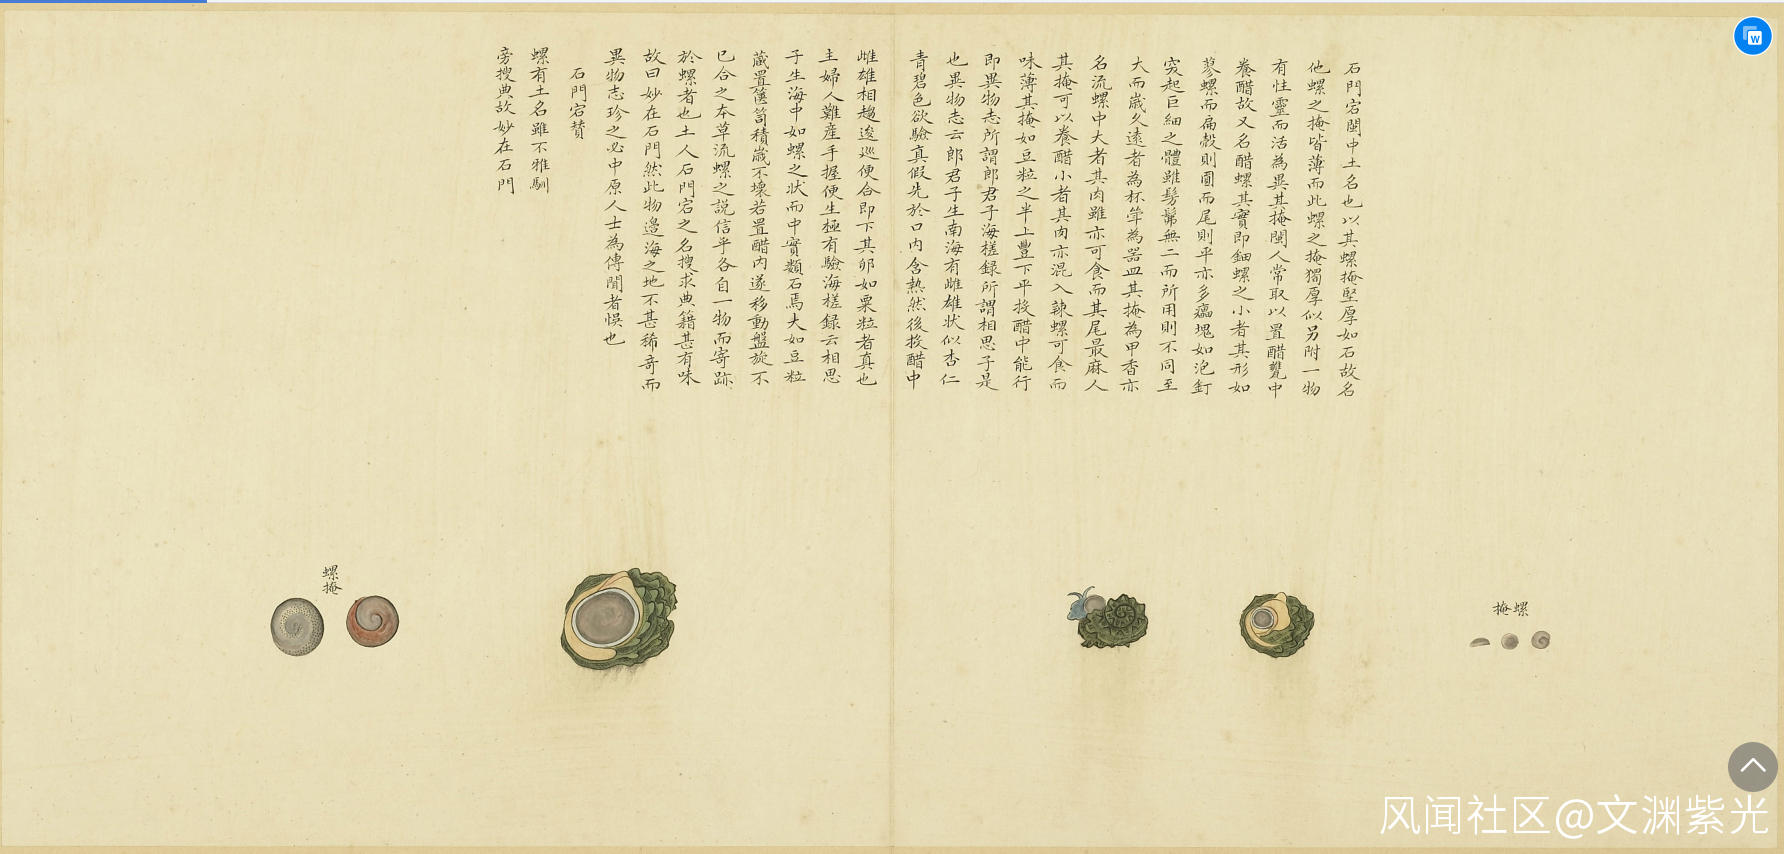 石門宕閩中土名也以其螺掩堅厚如石故名
他螺之掩皆薄而此螺之掩獨厚似另附一物
有性靈而活為異其掩閩人常取以置醋甕中
養醋故又名醋螺其實即鈿螺之小者其形如
蓼螺而扁殼則圓而尾則平亦多癟塊如泡釘
突起巨細之體雖髣髴無二而所用則不同至
大而歲久遠者為杯斝為器皿其掩為甲香亦
名流螺中大者其肉雖亦可食而其尾最麻人
其掩可以養醋小者其肉亦混入辣螺可食而
味薄其掩如豆粒之半上豐下平投醋中能行
即異物志所謂郎君子海槎録所謂相思子是
也異物志云郎君子生南海有雌雄狀似杏仁
青碧色欲驗真假先於口內含熱然後投醋中
雌雄相趨逡巡便合即下其卵如粟粒者真也
主婦人難產手握便生極有驗海槎録云相思
子生海中如螺之狀而中實類石焉大如豆粒
藏置篋笥積歲不壞若置醋內遂移動盤旋不
已合之本草流螺之說信乎各自一物而寄跡
於螺者也土人石門宕之名搜求典籍甚有味
故曰妙在石門然此物邊海之地不甚稀奇而
異物志珍之必中原人士為傳聞者悞也
石門宕賛
螺有土名雖不雅馴
旁搜典故妙在石門
掩螺
螺
掩
风闻社区@文渊紫光